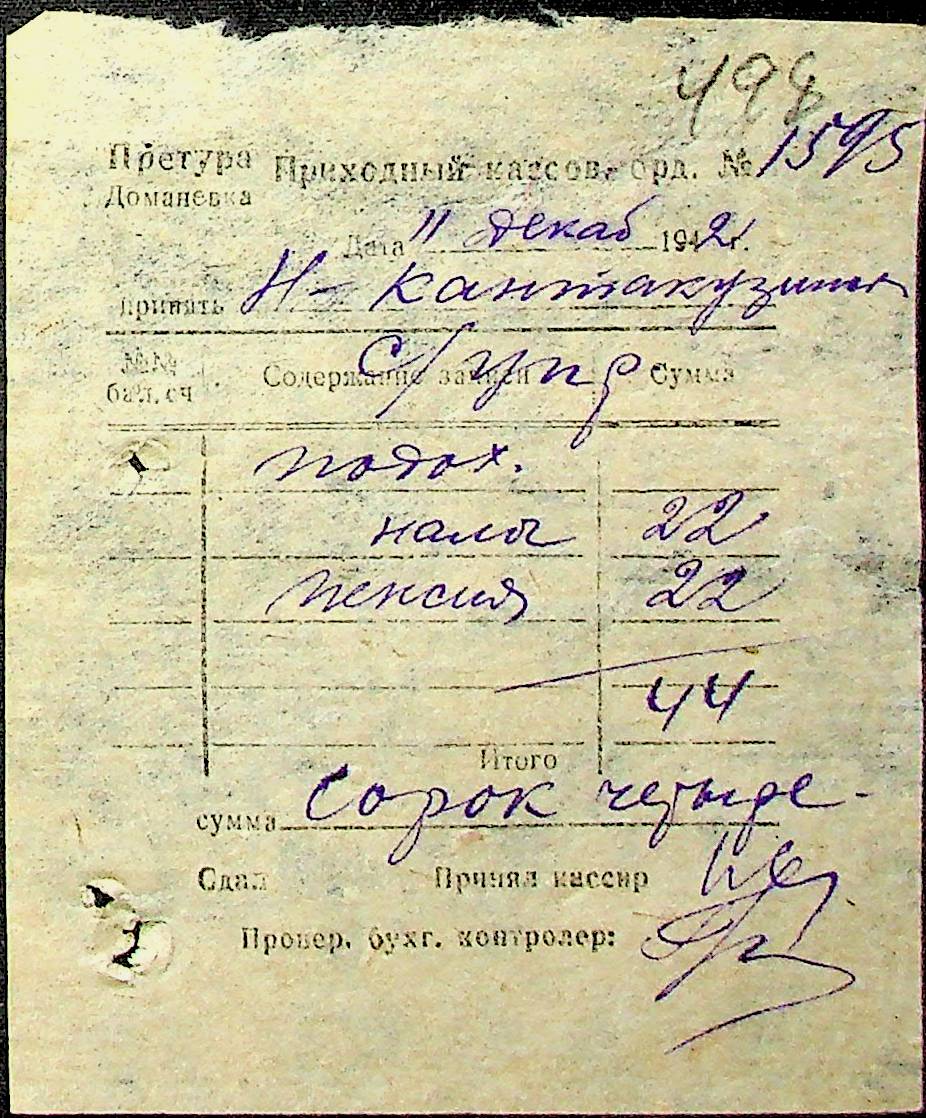 498
Претура Приходный кассов. орд. № 1595
Доманевка
Дата 11 декаб 1942 г.
принять Н- Кантакузина
с/упр.
№№ бал. сч. Содержание записи Сумма
подох.
налог 22
пенсия 22
44
Итого
сумма сорок четыре-
Сдал Принял кассир
Провер. бухг. контролер: